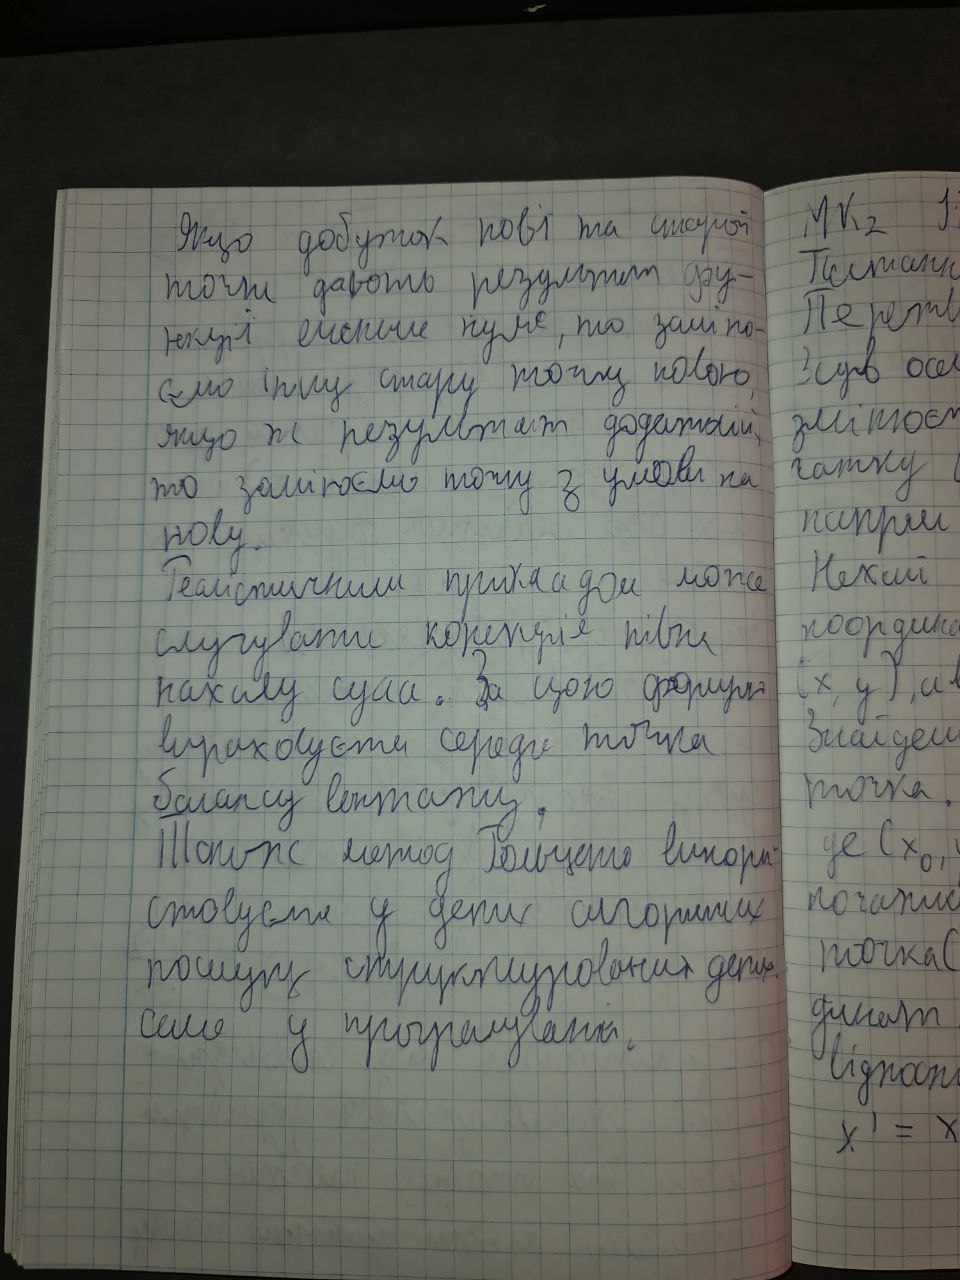 Якщо добуток нові та старої
точки дають результат фу-
нкції менше нуля, то заміню-
ємо іншу стару точку новою,
якщо ж результат додатній,
то замінюємо точку з умови на
нову.
Реалістичним прикладом може
слугувати корекція рівня
нахилу судна. За цією формул
вираховується середня точка
балансу вантажу.
Також метод Больцано викори-
стовується у деяких алгоритмах
пошуку структурованих даних
саме у програмуванні.
МК₂
Питання
Перетв
Зсув осе
зміщєм
чатку
напрям
Нехай
координа
(x, y), а в
Знайдем
точка.
де (x₀,
початко
точка(
динат
відносн
x' = x